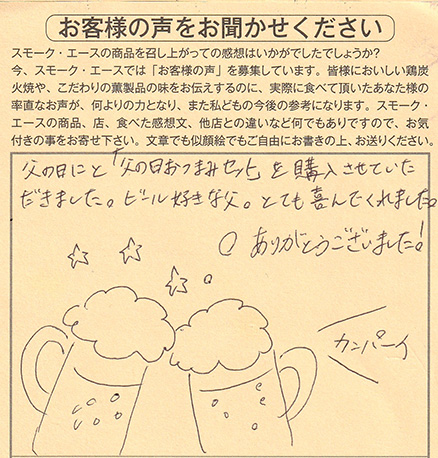 お客様の声をお聞かせください
スモーク・エースの商品を召し上がっての感想はいかがでしたでしょうか?
今、スモーク・エースでは「お客様の声」を募集しています。皆様においしい鶏炭
火焼や、こだわりの薫製品の味をお伝えするのに、実際に食べて頂いたあなた様の
率直なお声が、何よりの力となり、また私どもの今後の参考になります。スモーク・
エースの商品、店、食べた感想文、他店との違いなど何でもありですので、お気
付きの事をお寄せ下さい。文章でも似顔絵でもご自由にお書きの上、お送りください。
父の日にと「父の日おつまみセット」を購入させていた
だきました。ビール好きな父。とても喜んでくれました。
ありがとうございました!
カンパーイ